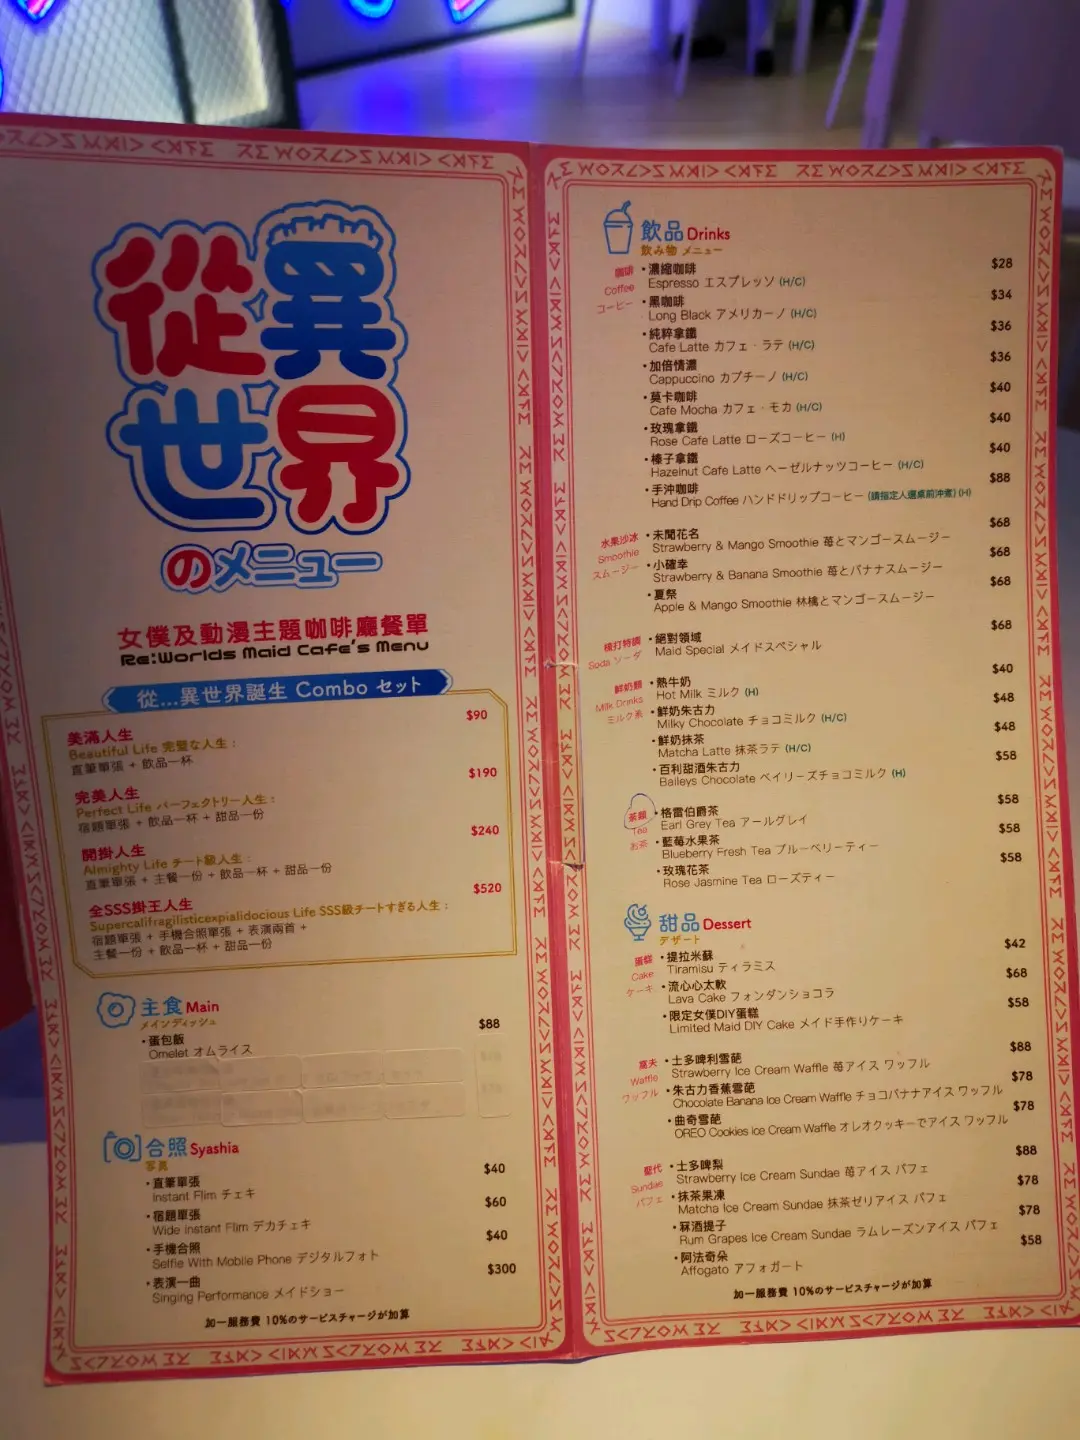 從異
世界
のメニュー
女僕及動漫主題咖啡廳餐單
Re:Worlds Maid Cafe's Menu
從...異世界誕生 Combo セット
美滿人生 $90
Beautiful Life 完璧な人生：
直筆單張 + 飲品一杯
完美人生 $190
Perfect Life パーフェクトリー人生：
宿題單張 + 飲品一杯 + 甜品一份
開掛人生 $240
Almighty Life チート級人生：
直筆單張 + 主餐一份 + 飲品一杯 + 甜品一份
全SSS掛王人生 $520
Supercalifragilisticexpialidocious Life SSS級チートすぎる人生：
宿題單張 + 手機合照單張 + 表演兩首 +
主餐一份 + 飲品一杯 + 甜品一份
主食 Main
メインディッシュ
・蛋包飯 $88
Omelet オムライス
合照 Syashia
写真
・直筆單張 $40
Instant Flim チェキ
・宿題單張 $60
Wide Instant Flim デカチェキ
・手機合照 $40
Selfie With Mobile Phone デジタルフォト
・表演一曲 $300
Singing Performance メイドショー
加一服務費 10%のサービスチャージが加算
飲品 Drinks
飲み物 メニュー
咖啡
Coffee
コーヒー
・濃縮咖啡 $28
Espresso エスプレッソ (H/C)
・黑咖啡 $34
Long Black アメリカーノ (H/C)
・純粹拿鐵 $36
Cafe Latte カフェ・ラテ (H/C)
・加倍情濃 $36
Cappuccino カプチーノ (H/C)
・莫卡咖啡 $40
Cafe Mocha カフェ・モカ (H/C)
・玫瑰拿鐵 $40
Rose Cafe Latte ローズコーヒー (H)
・榛子拿鐵 $40
Hazelnut Cafe Latte ヘーゼルナッツコーヒー (H/C)
・手沖咖啡 $88
Hand Drip Coffee ハンドドリップコーヒー (請指定人選桌前沖煮) (H)
水果沙冰
Smoothie
スムージー
・未聞花名 $68
Strawberry & Mango Smoothie 苺とマンゴースムージー
・小確幸 $68
Strawberry & Banana Smoothie 苺とバナナスムージー
・夏祭 $68
Apple & Mango Smoothie 林檎とマンゴースムージー
梳打特調
Soda ソーダ
・絕對領域 $68
Maid Special メイドスペシャル
鮮奶類
Milk Drinks
ミルク系
・熱牛奶 $40
Hot Milk ミルク (H)
・鮮奶朱古力 $48
Milky Chocolate チョコミルク (H/C)
・鮮奶抹茶 $48
Matcha Latte 抹茶ラテ (H/C)
・百利甜酒朱古力 $58
Baileys Chocolate ベイリーズチョコミルク (H)
茶類
Tea
お茶
・格雷伯爵茶 $58
Earl Grey Tea アールグレイ
・藍莓水果茶 $58
Blueberry Fresh Tea ブルーベリーティー
・玫瑰花茶 $58
Rose Jasmine Tea ローズティー
甜品 Dessert
デザート
蛋糕
Cake
ケーキ
・提拉米蘇 $42
Tiramisu ティラミス
・流心心太軟 $68
Lava Cake フォンダンショコラ
・限定女僕DIY蛋糕 $58
Limited Maid DIY Cake メイド手作りケーキ
窩夫
Waffle
ワッフル
・士多啤利雪葩 $88
Strawberry Ice Cream Waffle 苺アイス ワッフル
・朱古力香蕉雪葩 $78
Chocolate Banana Ice Cream Waffle チョコバナナアイス ワッフル
・曲奇雪葩 $78
OREO Cookies Ice Cream Waffle オレオクッキーでアイス ワッフル
聖代
Sundae
パフェ
・士多啤梨 $88
Strawberry Ice Cream Sundae 苺アイス パフェ
・抹茶果凍 $78
Matcha Ice Cream Sundae 抹茶ゼリアイス パフェ
・冧酒提子 $78
Rum Grapes Ice Cream Sundae ラムレーズンアイス パフェ
・阿法奇朵 $58
Affogato アフォガート
加一服務費 10%のサービスチャージが加算